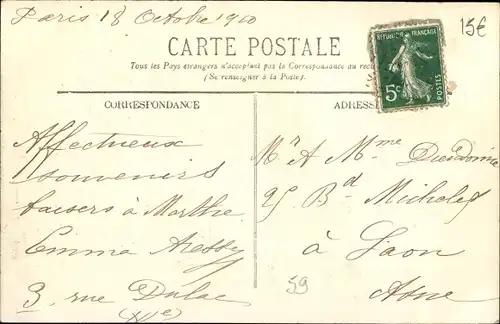 Paris 18 Octobre 1910
15€
CARTE POSTALE
Tous les Pays étrangers n'acceptent pas la Correspondance au recto
(Se renseigner à la Poste)
REPUBLIQUE FRANÇAISE
5c
POSTES
CORRESPONDANCE
ADRESSE
Affectueux
souvenirs
baisers à Marthe
Emma
3, rue Dulac
Mr & Mme Dieudonné
25 Bd Michelet
à Laon
Aisne
59